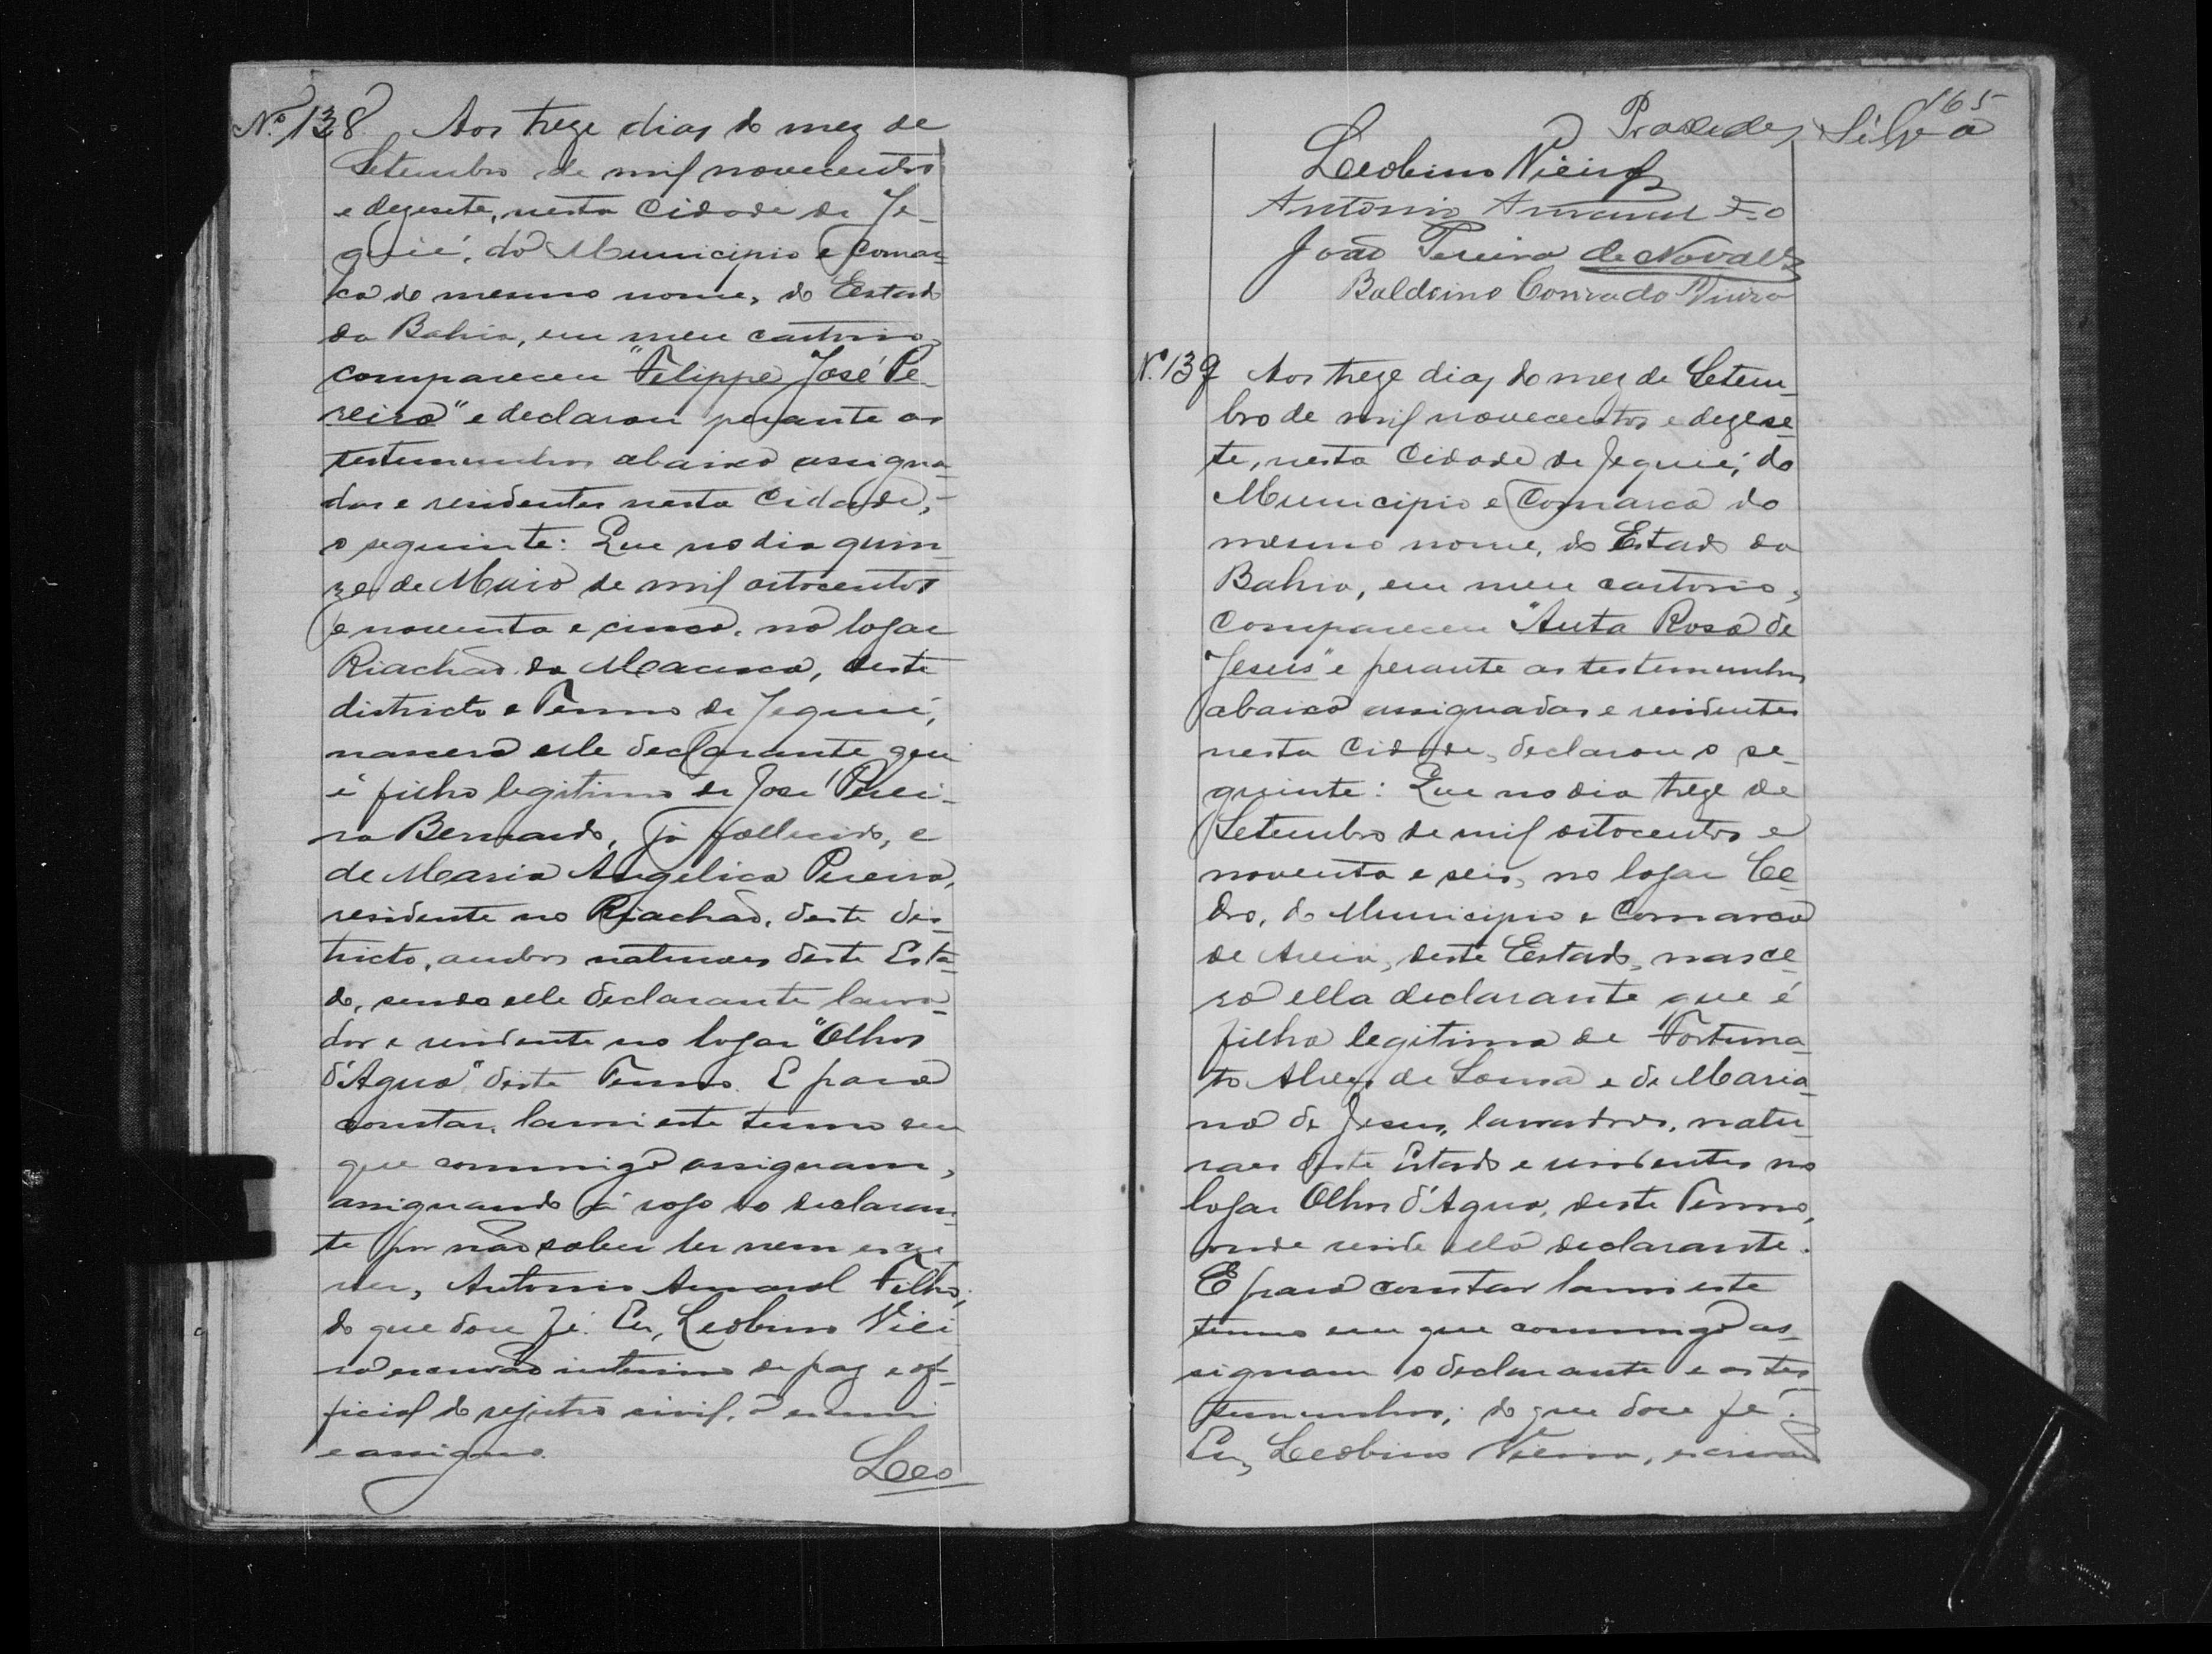 Nº 138 Aos treze dias do mez de
Setembro de mil novecentos
e dezesete, nesta Cidade de Je-
quié, do Municipio e Comar-
ca do mesmo nome, do Estado
da Bahia, em meu cartorio,
compareceu "Filippe José Pe-
reira" e declarou perante as
testemunhas abaixo assigna-
das e residentes nesta Cidade,
o seguinte: Que no dia quin-
ze de Maio de mil oitocentos
e noventa e cinco, no logar
Riachão da, deste
districto e Termo de Jequié,
nascera elle declarante que
é filho legitimo de José Perei-
ra Bernardo, já fallecido, e
de Maria Angelica Pereira,
residente no Riachão, deste dis-
tricto, ambos naturaes deste Esta-
do, sendo elle declarante lavra-
dor e residente no logar "Olhos
d'Agua" deste Termo. E para
constar, lavrei este termo em
que commigo assignam,
assignando á rogo do declaran-
te por não saber ler nem escre-
ver, Antonio Amaral Filho,
do que dou fé. Eu, Leobino Viei-
ra escrivão interino de paz e of-
ficial do registro civil, o escrevi
e assigno.
Leo
165
Praxedes Silva
Leobino Vieira
Antonio Amaral Fo
João Pereira de Novaes
Baldoino Conrado Vieira
Nº 139 Aos treze dias do mez de Setem-
bro de mil novecentos e dezese-
te, nesta Cidade de Jequié, do
Municipio e Comarca do
mesmo nome, do Estado da
Bahia, em meu cartorio,
compareceu "Auta Rosa de
Jesus" e perante as testemunhas
abaixo assignadas e residentes
nesta Cidade, declarou o se-
guinte: Que no dia treze de
Setembro de mil oitocentos e
noventa e seis, no logar Ce-
dro, do Municipio e Comarca
de Areia, deste Estado, nasce-
ra ella declarante que é
filha legitima de Fortuna-
to Alves de Sousa e de Maria-
na de Jesus, lavradores, natu-
raes deste Estado e residentes no
logar Olhos d'Agua, deste Termo,
onde reside ella declarante.
E para constar lavrei este
termo em que commigo as-
signam o declarante e as tes-
temunhas; do que dou fé.
Eu, Leobino Vieira, escrivão